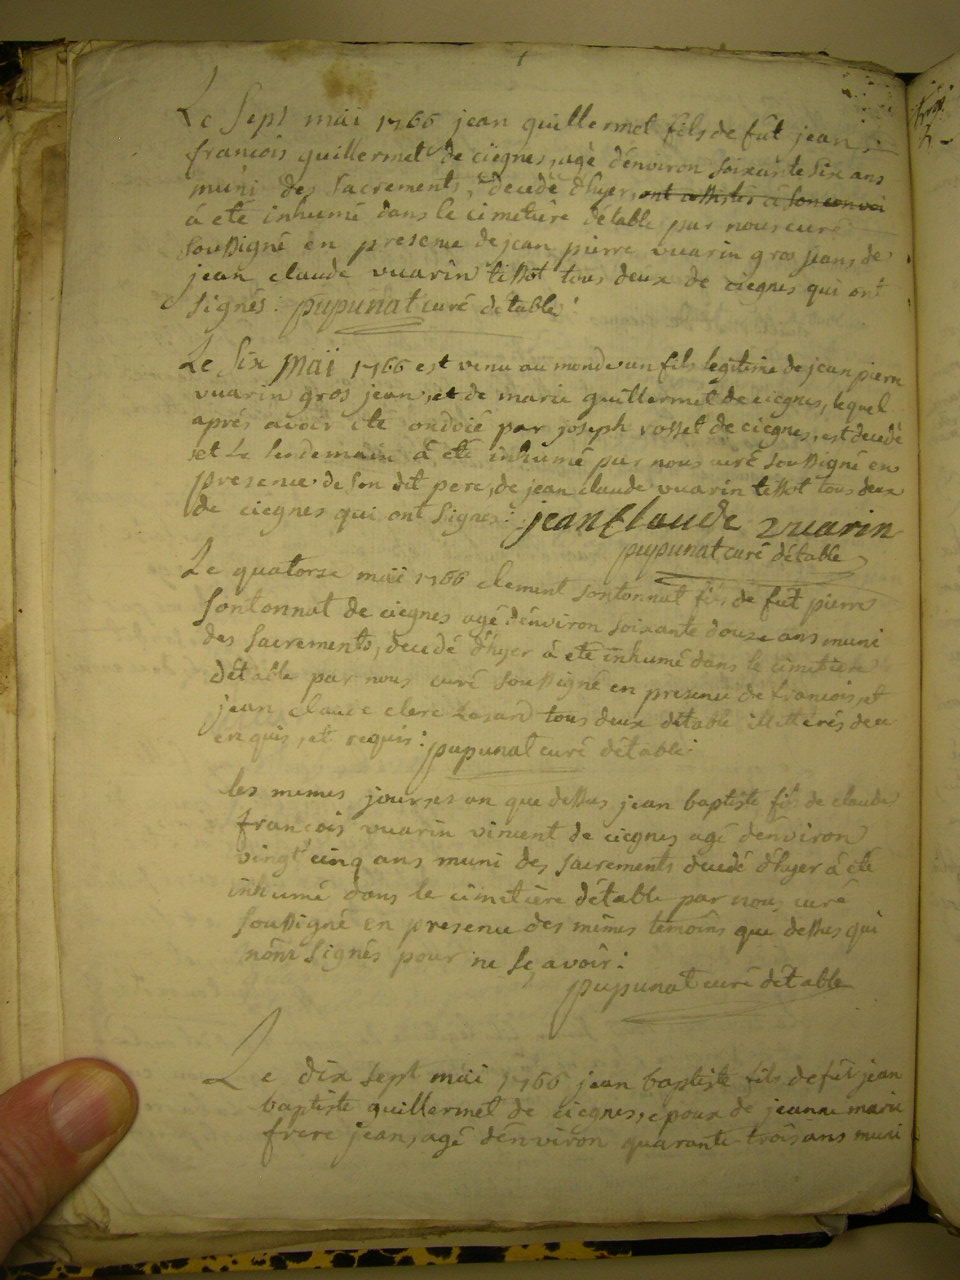 Le Sept maii 1766 jean quillermet fils de fût jean
francois quillermet de ciegnes, agé d'environ soixante six ans
muni des Sacrements, decedé d'hyer, ont assistés à son convoi
à eté inhumé dans le cimetiére détable par nous curé
soussigné en presence de jean pierre vuarin gros jean, de
jean claude vuarin tissot tous deux de ciegnes qui ont
signés : pupunat curé détable
Le Six maii 1766 est venu au monde un fils légitime de jean pierre
vuarin gros jean, et de marie quillermet de ciegnes, lequel
aprés avoir eté ondoié par joseph rosset de ciegnes, est decedé
et Le lendemain à eté inhumé par nous curé soussigné en
presence de son dit pere, de jean claude vuarin tissot tous deux
de ciegnes qui ont signés : jean Claude vuarin
pupunat curé détable
Le quatorze maii 1766 clement sontonnat fils de fût pierre
sontonnat de ciegnes agé d'environ soixante douze ans muni
des Sacrements, decedé d'hyer à eté inhumé dans le cimetiere
détable par nous curé soussigné en presence de francois, et
jean claude clerc tous deux détable illitterés de ce
enquis, et requis : pupunat curé détable
les memes jour, et an que dessus jean baptiste fils de claude
françois vuarin vincent de ciegnes agé d'environ
vingt cinq ans muni des sacrements decedé d'hyer à eté
inhumé dans le cimetière détable par nous curé
soussigné en presence des mémes temoins que dessus qui
n'ont signés pour ne sçavoir :
pupunat curé détable
Le dix sept maii 1766 jean baptiste fils de fût jean
baptiste quillermet de ciegnes, epoux de jeanne marie
frere jean, agé d'environ quarante trois ans muni